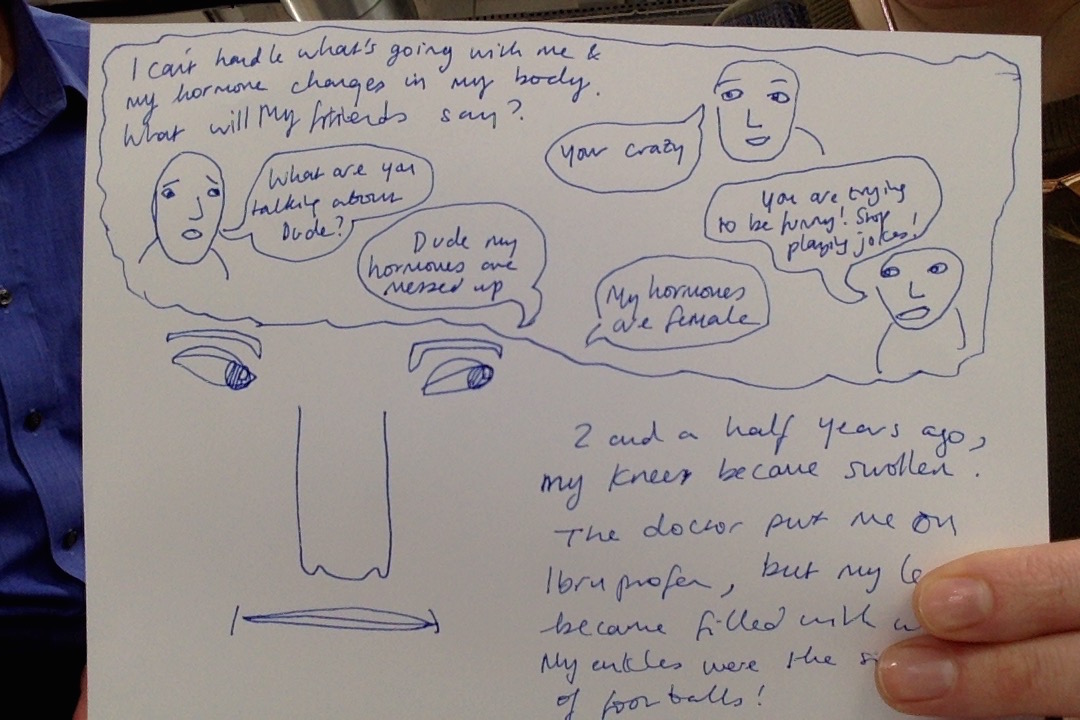 I can't handle what's going with me &
my hormone changes in my body.
What will My friends say?
What are you
talking about
Dude?
Dude my
hormones are
messed up
Your crazy
You are trying
to be funny! Stop
playing jokes!
My hormones
are female
2 and a half years ago,
my knees became swollen.
The doctor put me on
Ibruprofen, but my
became filled with
My ankles were the
of footballs!